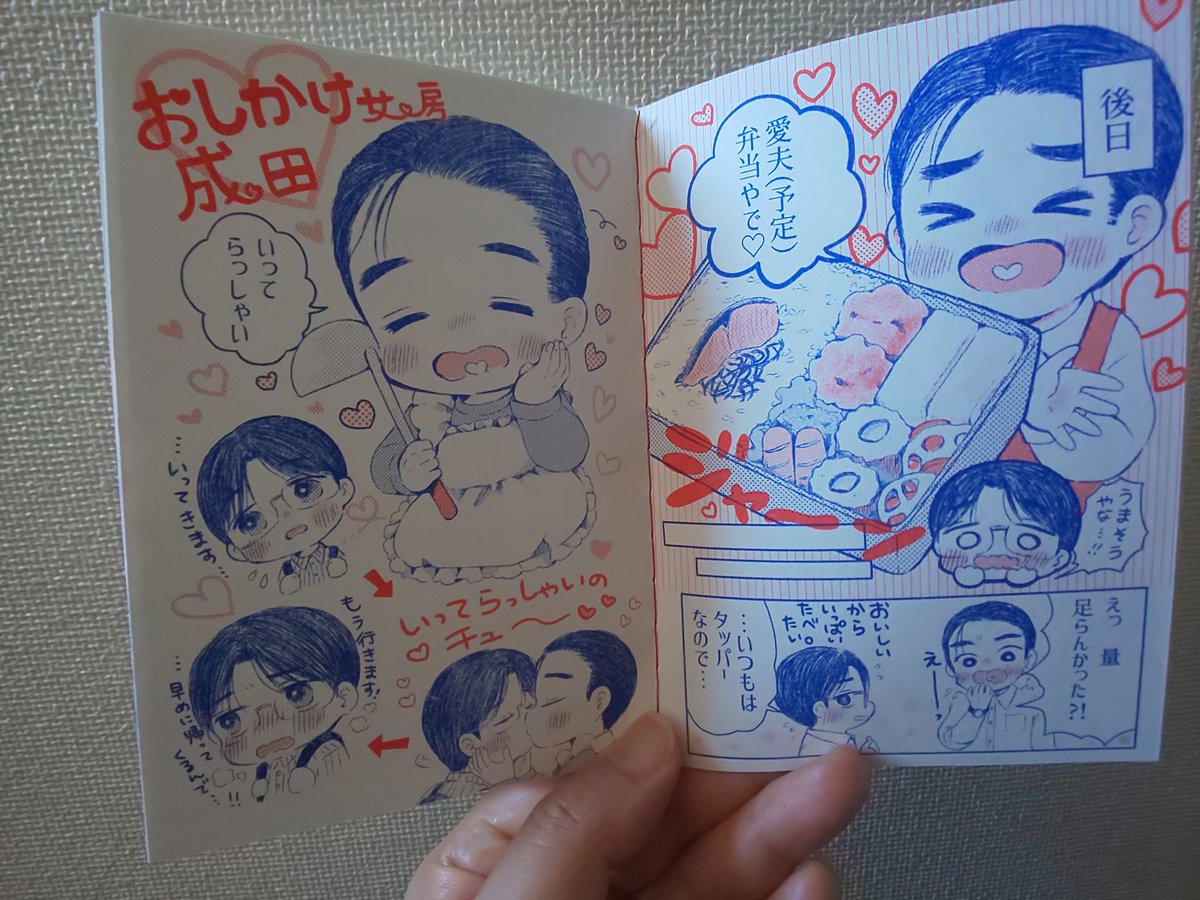 おしかけ女房
成田
いって
らっしゃい
…いってきます…
いってらっしゃいの
♡チュ〜♡♡
もう行きます!
…早めに帰って
くるんで…!!
後日
愛夫(予定)
弁当やで♡
ジャーン
うまそう
やな…!!
えっ 量
足らんかった?!
えーっ
おいしい
から
いっぱい
たべ。
たい
…いつもは
タッパー
なので…